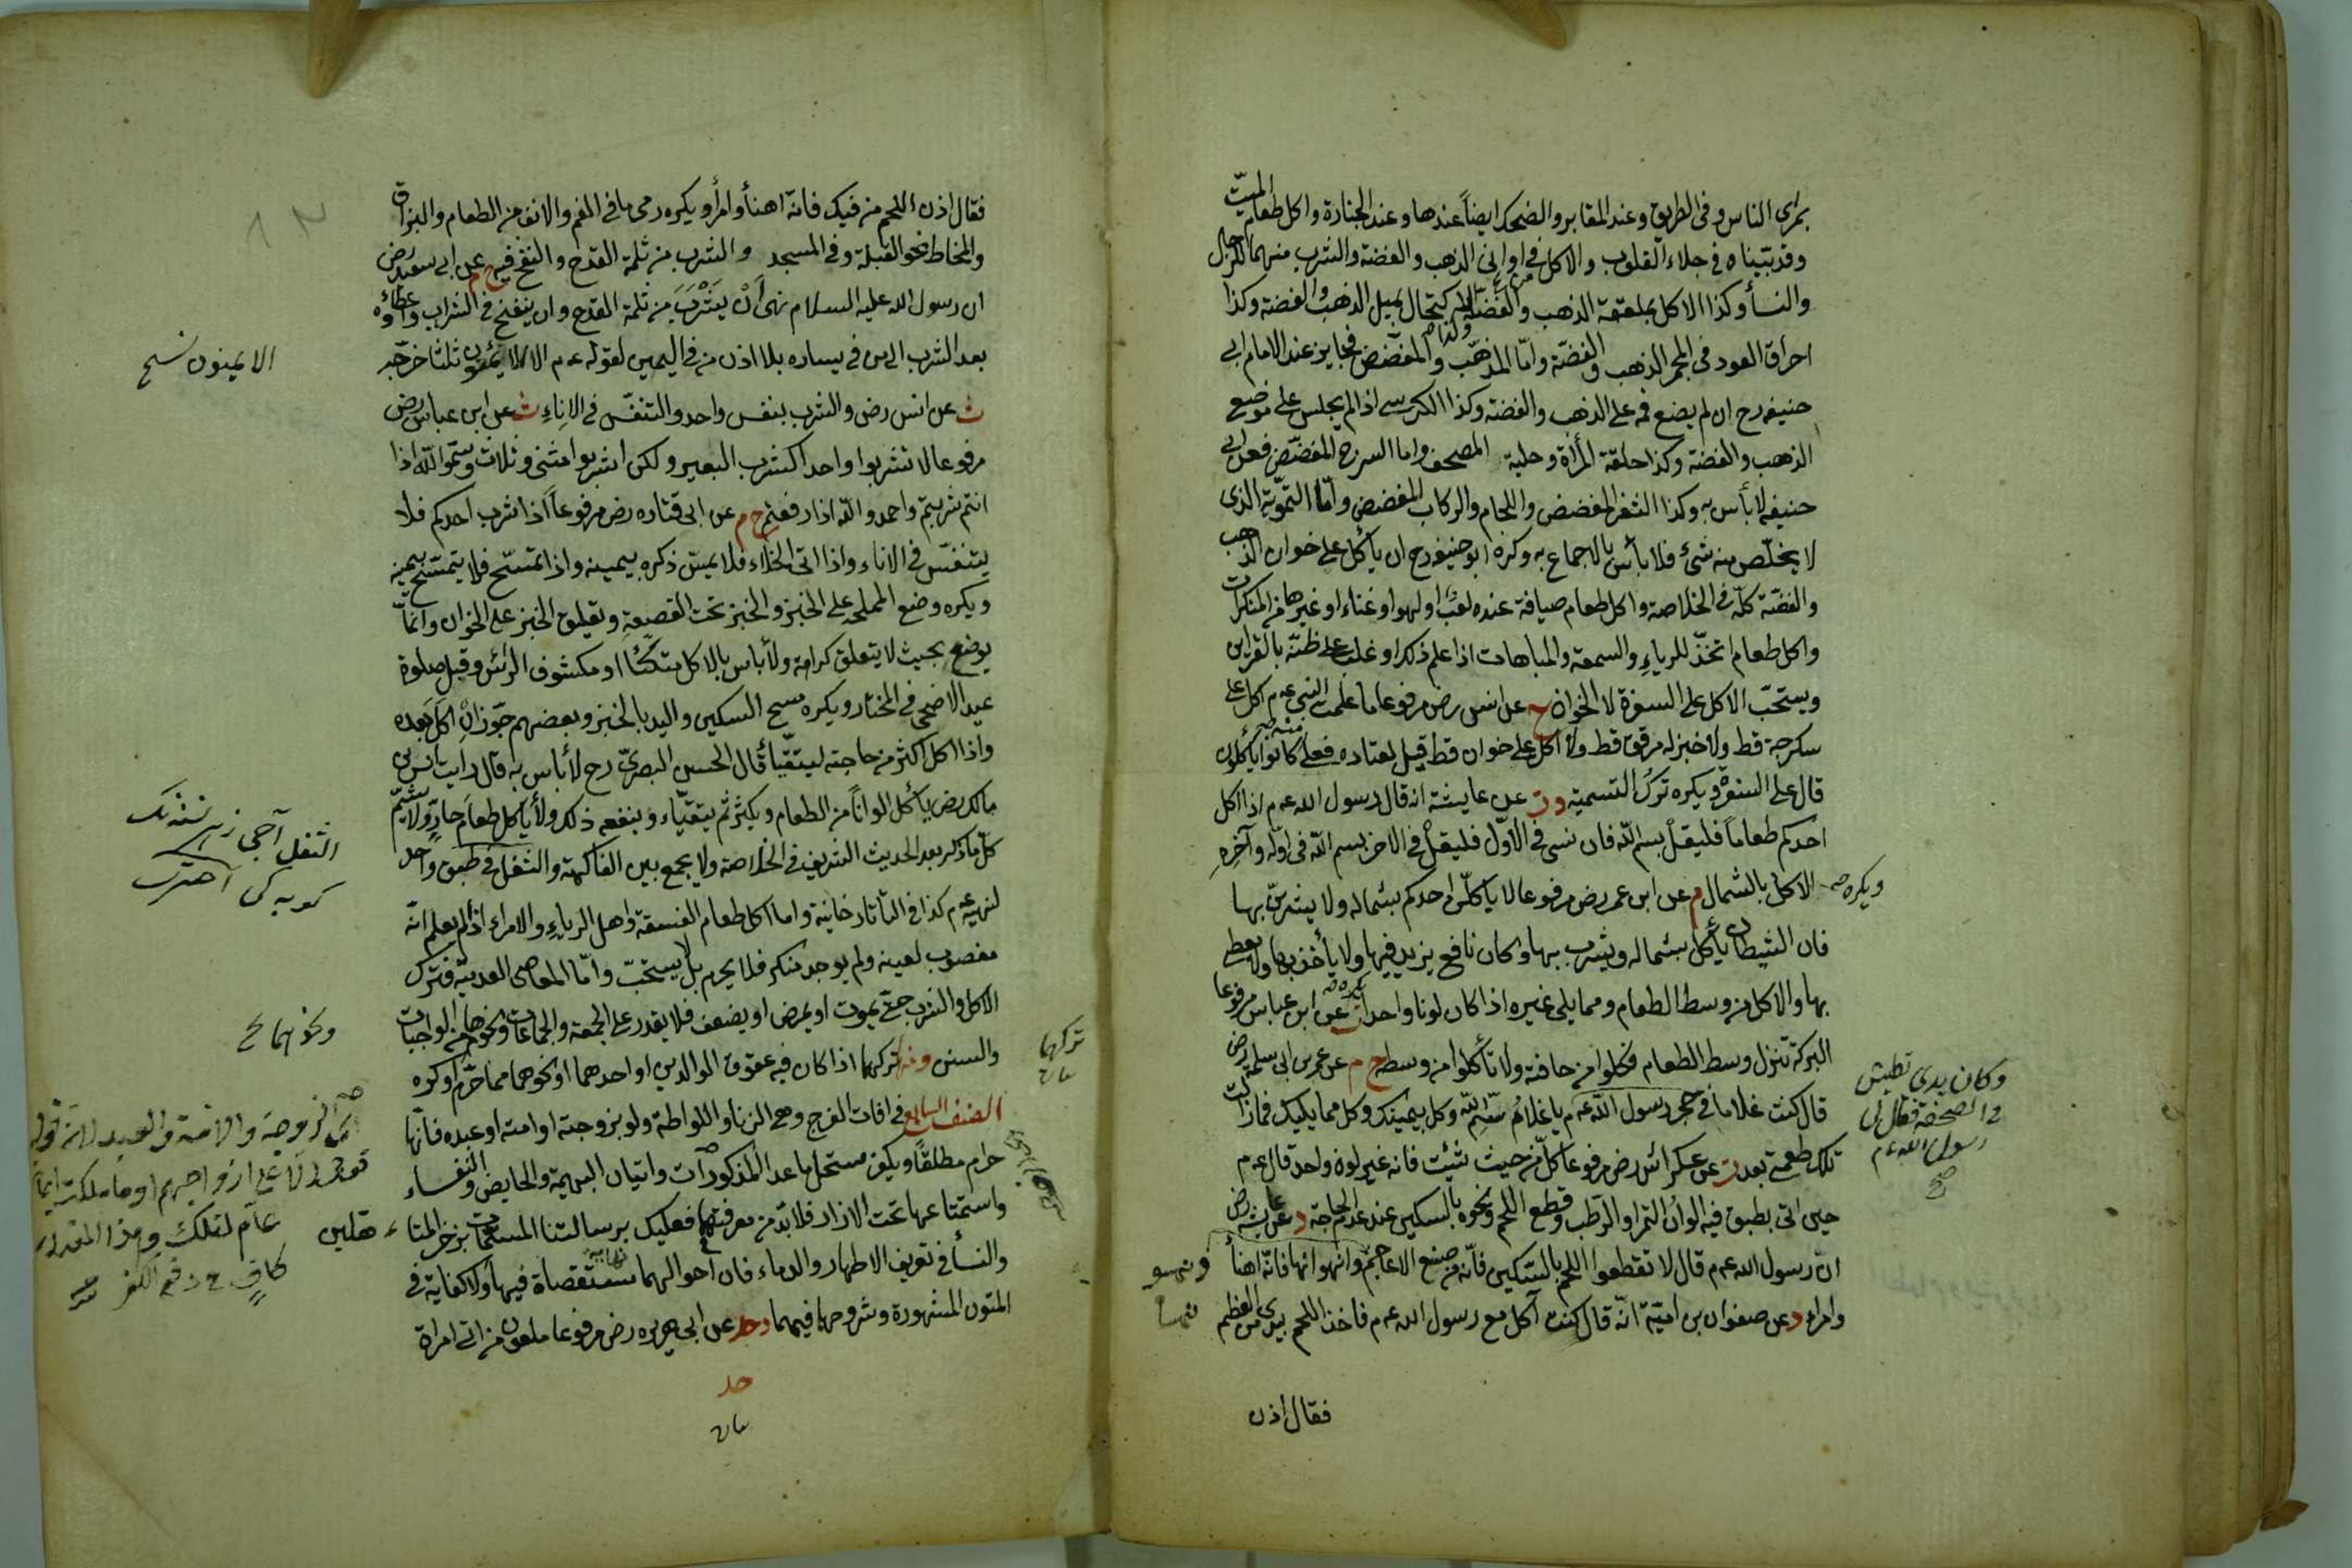 بمرأى الناس وفى الطريق وعند المقابر والضحك ايضاً عندها وعند الجنازة واكل طعام الميّت
وقد بيّناه فى جلاء القلوب والاكل فى اوانى الذهب والفضة والشرب منهما للرجال
والنسأ وكذا الاكل بملعقة الذهب والفضّة والاكتحال بميل الذهب والفضة وكذا
احراق العود فى المجمر الذهب والفضّة وامّا المذهّب والمفضّض فجايز عند الامام ابى
حنيفه رح ان لم يضع فمه على الذهب والفضة وكذا الكرسى اذا لم يجلس على موضع
الذهب والفضة وكذا حلقة المرأة وحلية المصحف واما السرج المفضّض فعن ابى
حنيفه لا بأس به وكذا الثفر المفضض واللجام والركاب المفضض وامّا التمويه الذى
لا يخلّص منه شئ فلا بأس بالاجماع به وكره ابو حنيفه رح ان يأكل على خوان الذهب
والفضّة كلّه فى الخلاصة واكل طعام ضيافة عنده لعب او لهو او غناء او غيرها من المنكرات
واكل طعام اتخذ للرياء والسمعة والمباهات اذا علم ذلك او غلب على ظنّه بالقرائن
ويستحبّ الاكل على السفرة لا الخوان خ عن انس رض مرفوعا ما علمت النبى عم اكل على
سكرجة قط ولا خبز له مرقق قط ولا اكل على خوان قط قيل لقتاده فعلى ما كانوا يأكلون
قال على السفرة ويكره ترك التسمية دت عن عايشة انه قال رسول الله عم اذا اكل
احدكم طعاماً فليقل بسم الله فان نسى فى الاول فليقل فى الاخر بسم الله فى اوّله وآخره
ويكره صح
الاكل بالشمال م عن ابن عمر رض مرفوعا لا يأكلنّ احدكم بشماله ولا يشربنّ بها
فان الشيطان يأكل بشماله ويشرب بها وكان نافع يزيد فيها ولا يأخذ بها ولا يعطى
بها والاكل من وسط الطعام ومما يلى غيره اذا كان لونا واحدا ت عن ابن عباس مرفوعا
البركة تنزل وسط الطعام فكلوا من حافته ولا تأكلوا من وسطه خ م عن عمر بن ابى سلمة رض
قال كنت غلاما فى حجر رسول الله عم يا غلام سمّ الله وكل بيمينك وكل مما يليك فما زالت
وكان يدى تطيش
فى الصحفة فقال لى
رسول الله عم
صح
تلك طعمتى بعد ت عن عكراش رض مرفوعا كل من حيث شئت فانه غير لون واحد قال عم
حين اتى بطبق فيه الوان التمر او الرطب وقطع اللحم ونحوه بالسكين عند عدم الحاجة د عن عايشة رض
ان رسول الله عم قال لا تقطعوا اللحم بالسكين فانّه من صنع الاعاجم وانهسوا نهسا فانّه اهنأ
وامرأ د عن صفوان بن اميّة انّه قال كنت آكل مع رسول الله عم فاخذ اللحم بيدى من العظم
فقال اذن
فقال اذن اللحم من فيك فانّه اهنأ وامرأ ويكره رمى ما فى الفم والانف من الطعام والبزاق
والمخاط نحو القبلة وفى المسجد والشرب من ثلمة القدح والنفخ فيه خ م عن ابى سعيد رض
ان رسول الله عليه السلام نهى أن يشرب من ثلمة القدح وان ينفخ فى الشراب واعطاؤه
بعد الشرب الى من فى يساره بلا اذن من فى اليمين لقوله عم الايمنون ثلثا خرّجه
الايمنون نسخ
ث عن انس رض والشرب بنفس واحد والتنفّس فى الاناء ث عن ابن عباس رض
مرفوعا لا تشربوا واحدا كشرب البعير ولكن اشربوا مثنى وثلاث وسمّوا الله اذا
انتم شربتم واحمدوا الله اذا رفعتم خ م عن ابى قتاده رض مرفوعاً اذا شرب احدكم فلا
يتنفّس فى الاناء واذا اتى الخلاء فلا يمسّ ذكره بيمينه واذا تمسّح فلا يتمسّح بيمينه
ويكره وضع المملحة على الخبز والخبز تحت القصعة وتعليق الخبز على الخوان وانّما
يوضع بحيث لا يتعلق كرامة ولا بأس بالاكل متكئاً او مكشوف الرأس وقبل صلوة
عيد الاضحى فى المختار ويكره مسح السكين واليد بالخبز وبعضهم جوّز ان اكل بعده
واذا اكل اكثر من حاجته ليتقيّأ قال الحسن البصرىّ رح لا بأس به قال رايت انس بن
مالك رض يأكل الواناً من الطعام ويكثر ثم يتقيّاء وينفعه ذلك ولا يأكل طعام حارّ ولا يشمّ
كلّ ما ذكر بعد الحديث الشريف فى الخلاصة ولا يجمع بين الفاكهة والثفل فى طبق واحد
لنهيه عم كذا فى التاتارخانية واما اكل طعام الفسقة واهل الرياء والامراء اذا لم يعلم انّه
مغصوب لعينه ولم يوجد منكر فلا يحرم بل لا يستحبّ وامّا المعاصى العدمية فترك
الاكل والشرب حتّى يموت او يمرض او يضعف فلا يقدر على الجمعة والجماعات ونحوها من الواجبات
ونحوهما خ
والسنن ومنه تركهما اذا كان فيه عقوق الوالدين او احدهما او نحوهما مما حرّم او كره
تركهما
الصنف السابع فى افات الفرج وهى الزنا واللواطة ولو بزوجته او امته او عبده فانّها
حرام مطلقاً ويكفر مستحلها عدا المذكورات واتيان البهيمة والحايض والنفساء
واستمتاعها تحت الازار فلا بدّ من معرفتهما فعليك برسالتنا المسمّات بذخر المتأهلين
والنسأ فى تعريف الاطهار والدماء فان احوالهما مستقصاة فيها ولا كفاية فى
المتون المشهورة وشروحها فيهما دحد عن ابى هريره رض مرفوعا ملعون من اتى امرأة
حد